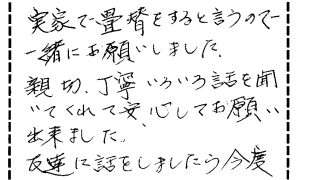 実家で畳替をすると言うので
一緒にお願いしました。
親切、丁寧いろいろ話を聞
いてくれて安心してお願い
出来ました。
友達に話をしましたら今度